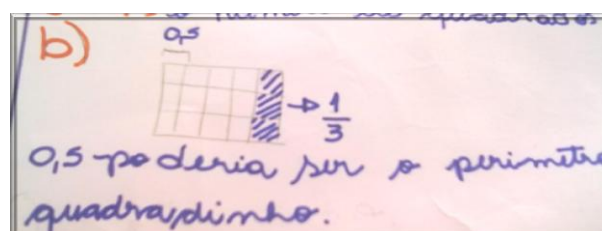 b)
0,5
1
3
0,5 poderia ser o perimetro
quadradinho.